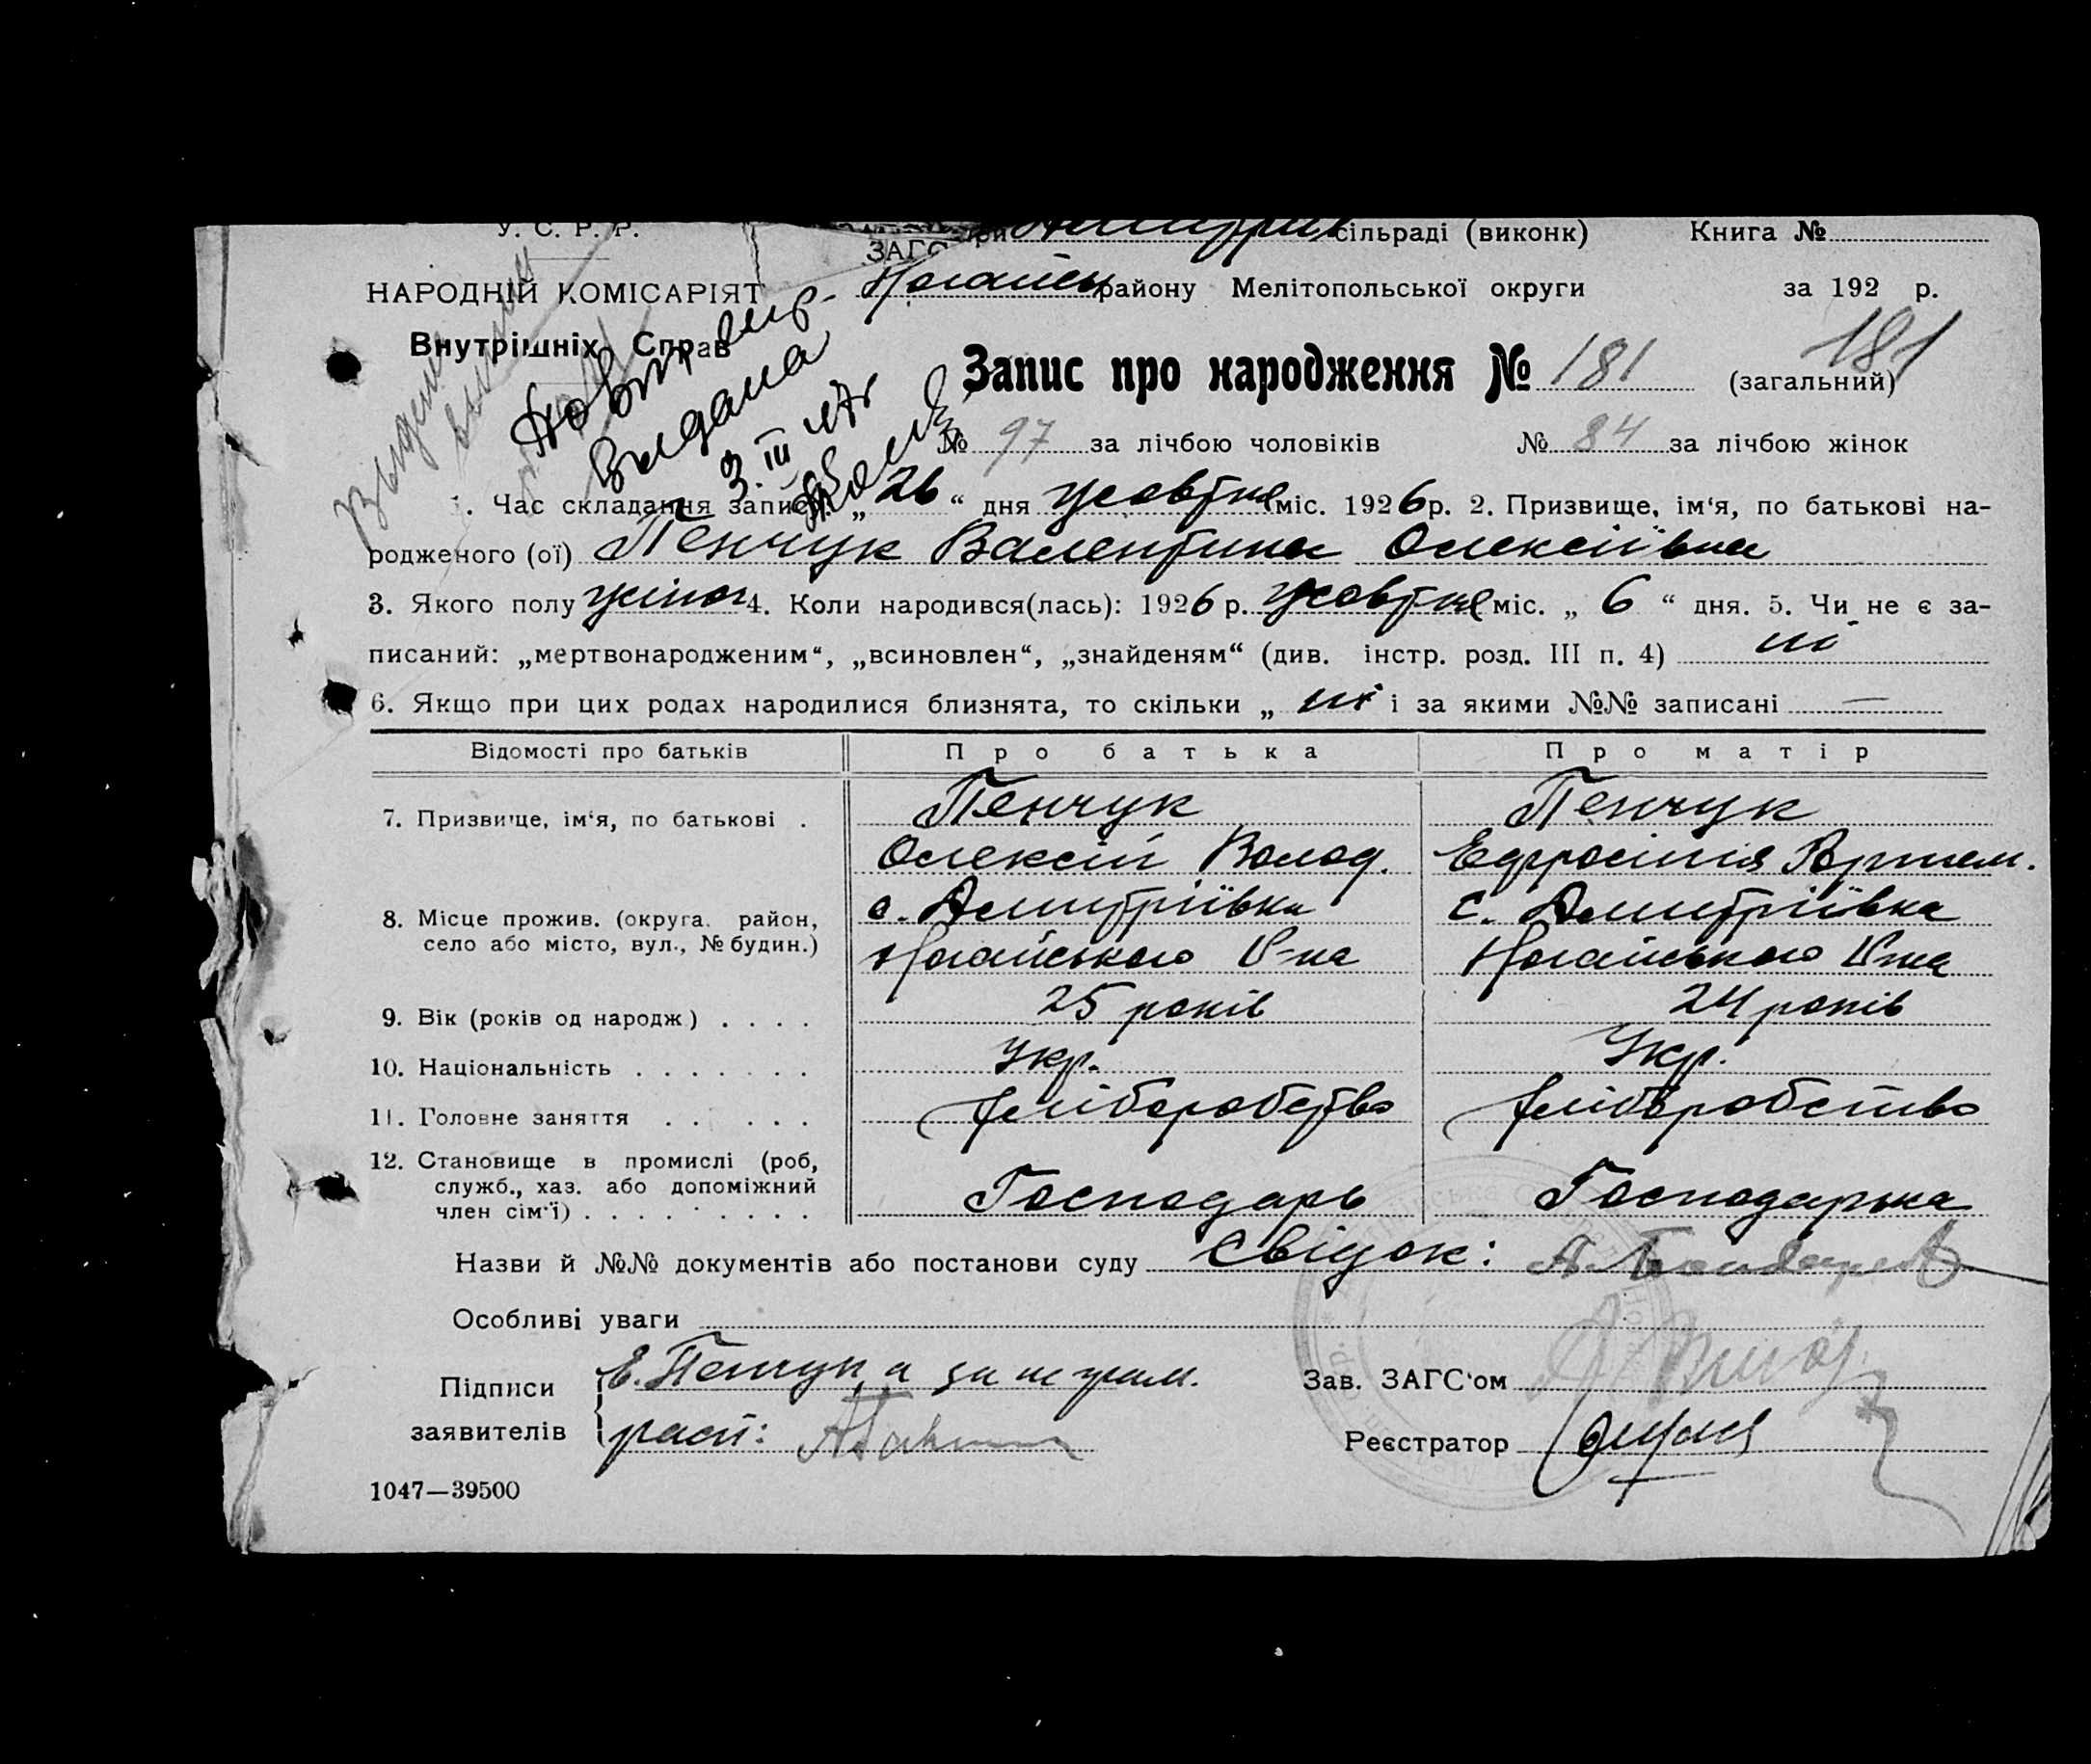 У. С. Р. Р.
ЗАГС при сільраді (виконк) Книга №
НАРОДНІЙ КОМІСАРІЯТ Ногайськ району Мелітопольської округи за 192 р.
Внутрішніх Справ
Запис про народження № 181 (загальний) 181
Повторн.
Выдана
3. III 47г
№ 97 за лічбою чоловіків № 84 за лічбою жінок
1. Час складання запису „26“ дня жовтня міс. 1926 р. 2. Призвище, ім‘я, по батькові на-
родженого (ої) Пенчук Валентина Олексіївна
3. Якого полу жіноч 4. Коли народився(лась): 1926 р. жовтня міс. „ 6 “ дня. 5. Чи не є за-
писаний: „мертвонародженим“, „всиновлен“, „знайденям“ (див. інстр. розд. III п. 4) ні
6. Якщо при цих родах народилися близнята, то скільки „ ні і за якими №№ записані —
Відомості про батьків Про батька Про матір
7. Призвище, ім‘я, по батькові . Пенчук Пенчук
Олексій Волод. Ефросинія Артем.
8. Місце прожив. (округа. район, с. Дмитріївка с. Дмитріївка
село або місто, вул., № будин.) Ногайського Р-на Ногайського Р-на
9. Вік (років од народж) . . . . 25 років 24 років
10. Національність . . . . . . . Укр. Укр.
11. Головне заняття . . . . . хліборобство хліборобство
12. Становище в промислі (роб,
служб., хаз. або допоміжний Господарь Господарька
член сім‘ї) . . . . . . . . .
Назви й №№ документів або постанови суду Свідок: А. Бондарев
Особливі уваги
Підписи Е. Пенчук, а за негром. Зав. ЗАГС‘ом
заявителів расп: Реєстратор
1047—39500